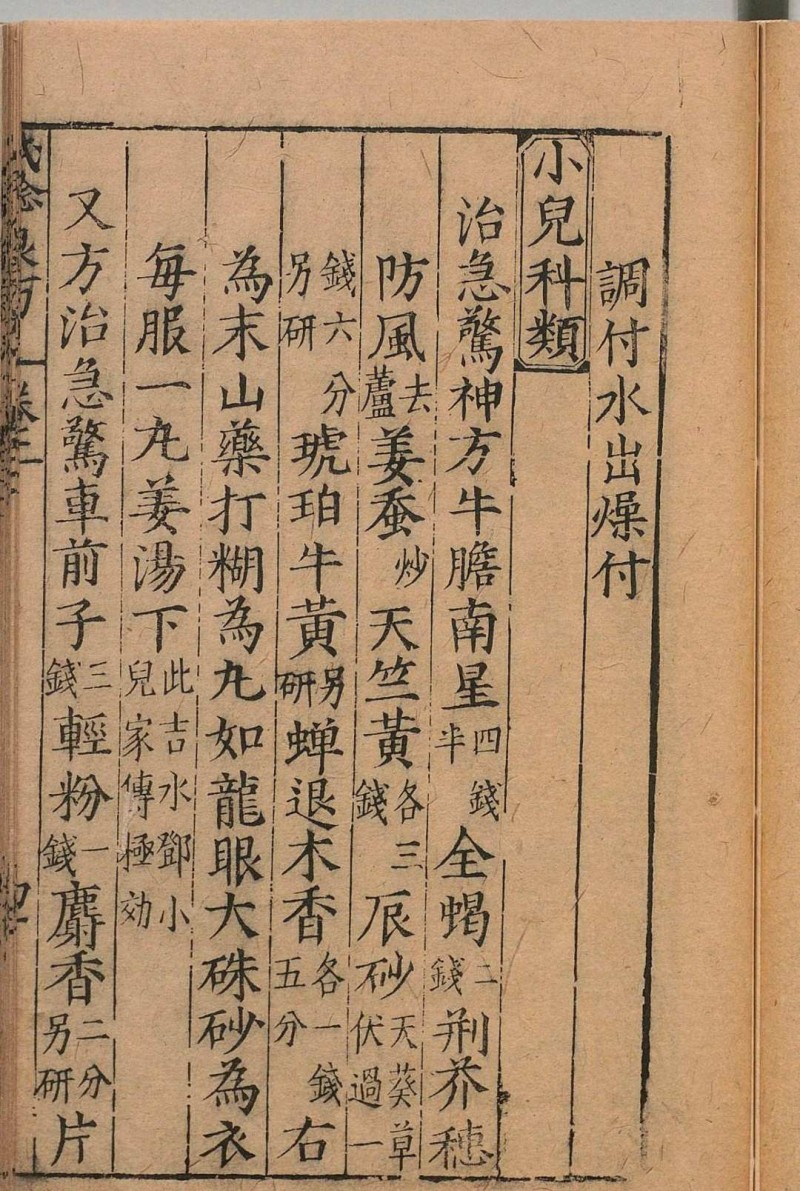 調付水出燥付
小兒科類
治急驚神方牛膽南星四錢半全蝎二錢荆芥穗
防風去蘆姜蚕炒天竺黃各三錢辰砂天葵草伏過一
錢六分另研琥珀牛黃另研蟬退木香各一錢五分右
為末山藥打糊為丸如龍眼大硃砂為衣
每服一丸姜湯下此吉水鄧小兒家傳極効
又方治急驚車前子三錢輕粉一錢麝香二分另研片